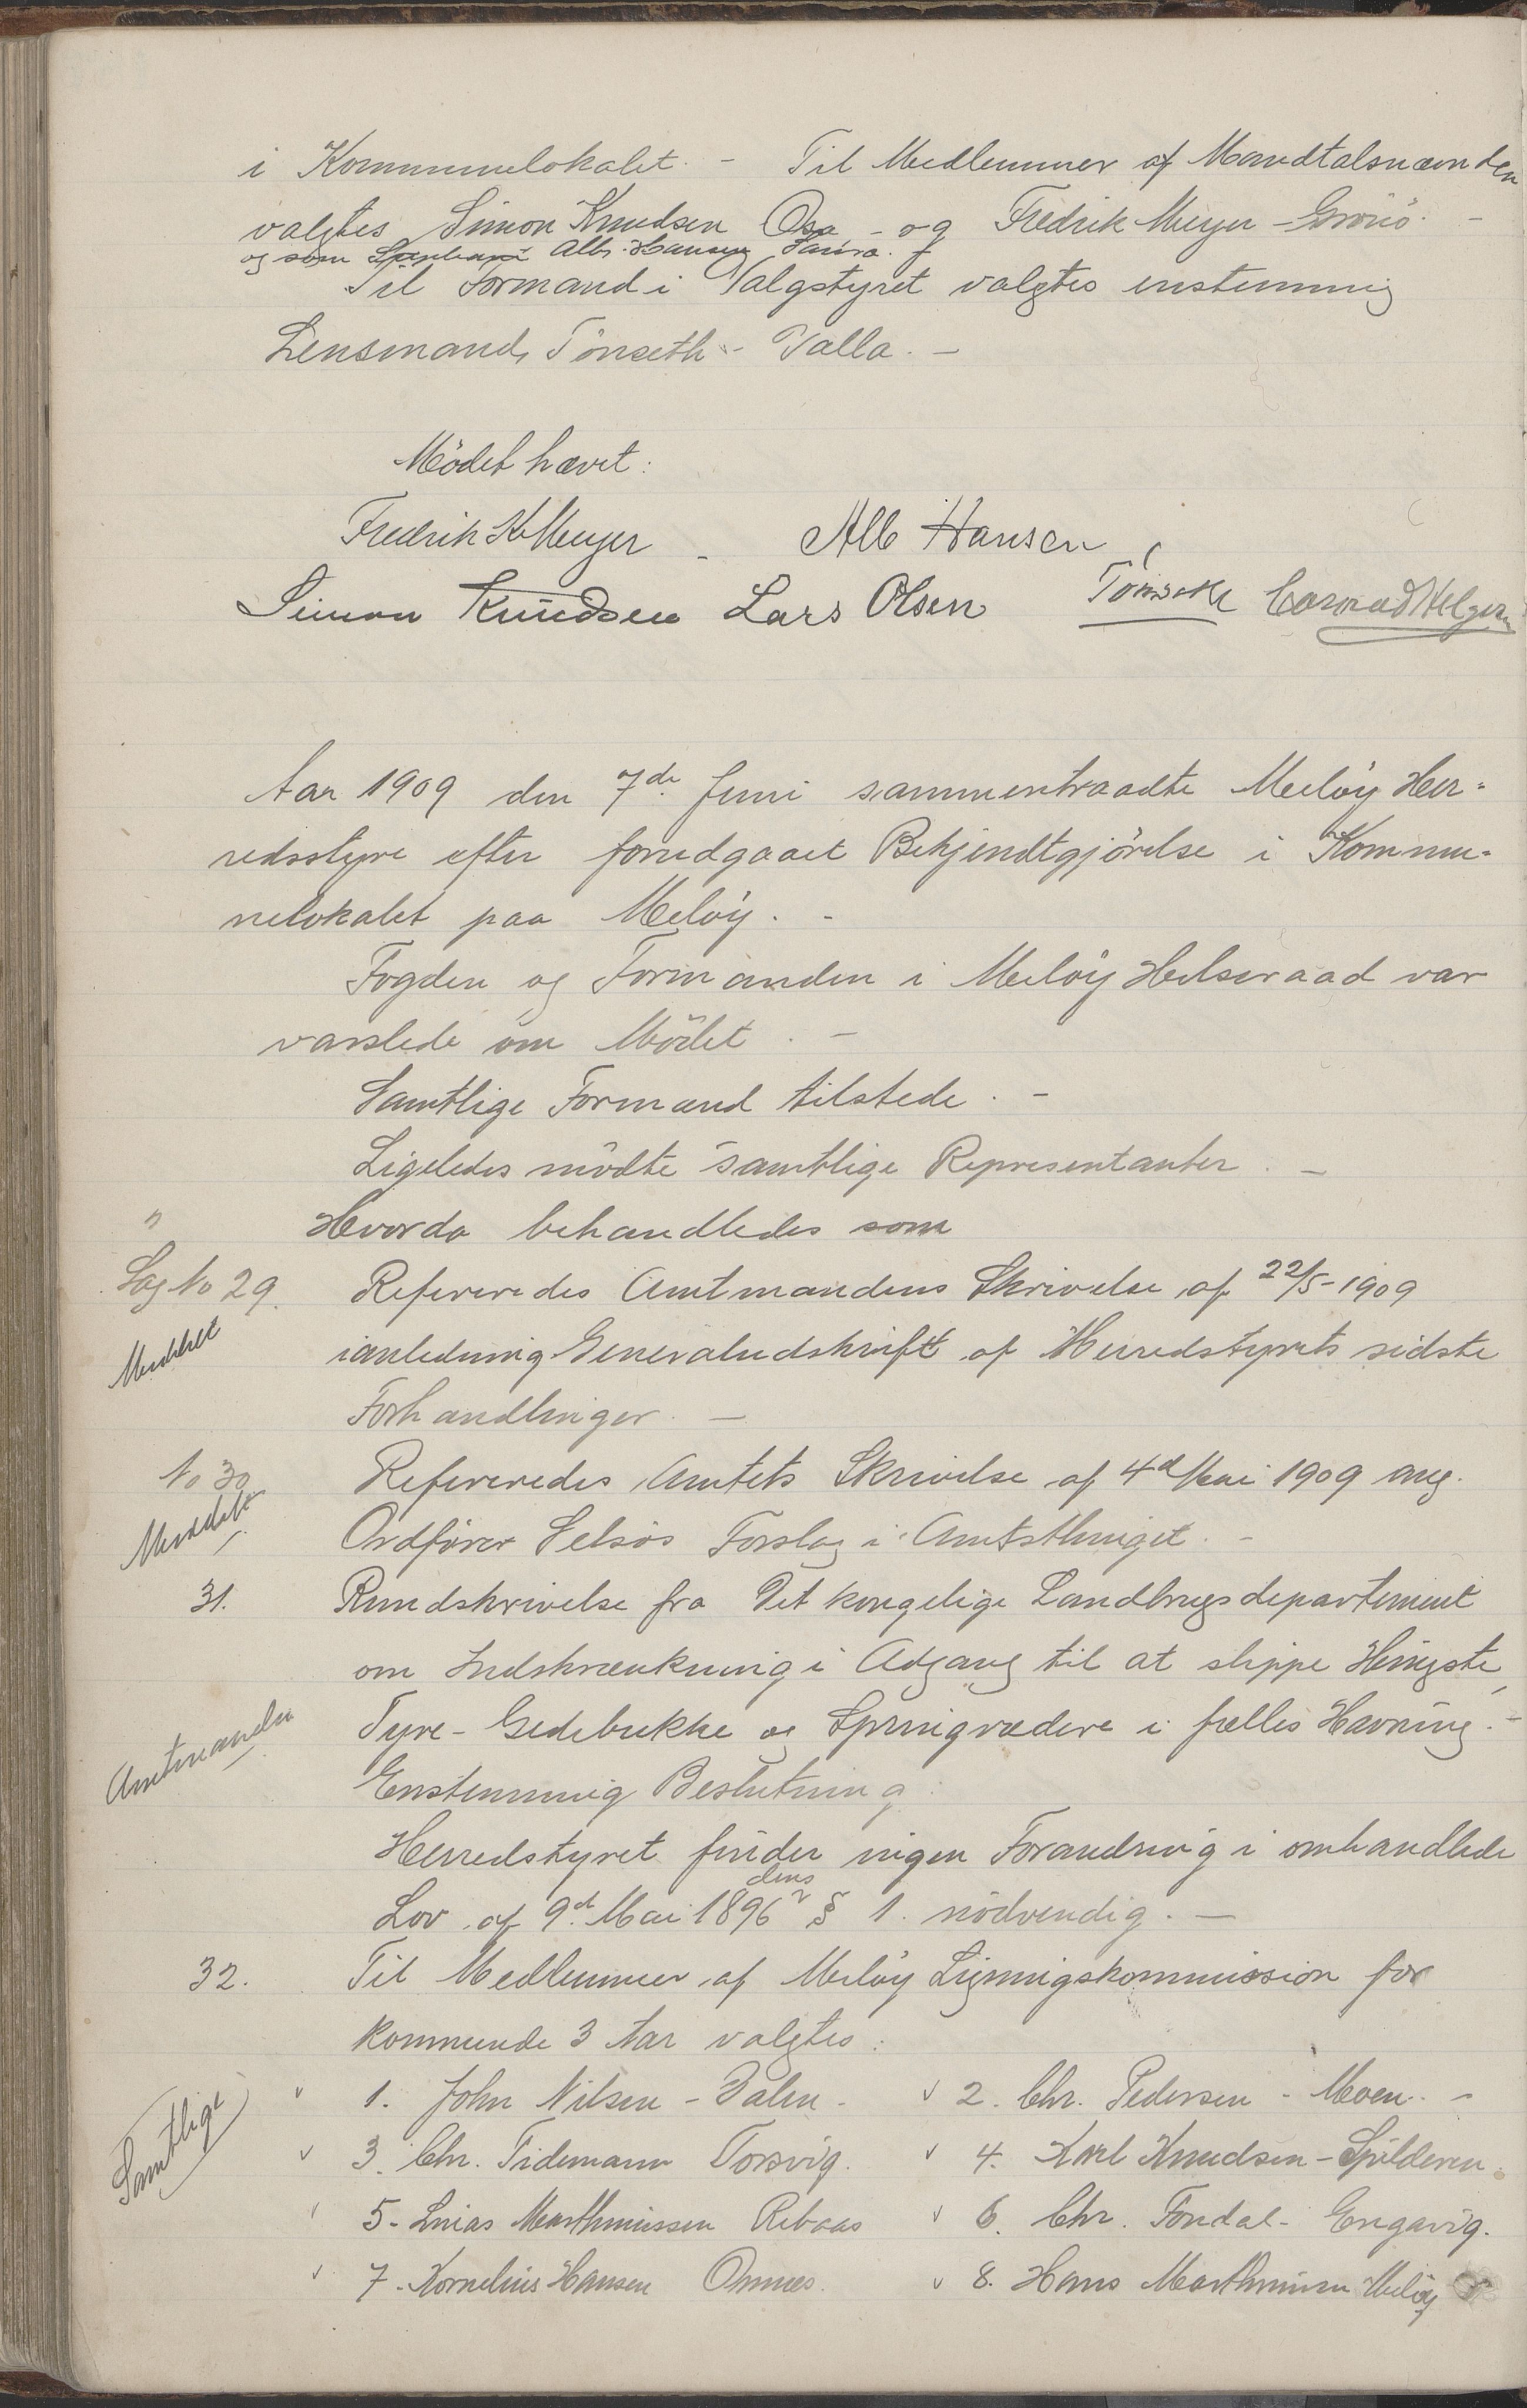 i Kommunelokalet. - Til Medlemmer af Mandtalsnævnden
valgtes Simon Knudsen Osa - og Fredrik Meyer - Grönö. -
og som Alb. Hansen Saura.
Til Formand i Valgstyret valgtes enstemmig
Lensmand Tönseth - Valla. -
Mödet hævet:
Fredrik K Meyer - Alb Hansen
Simon Knudsen Lars Olsen Tönseth Conrad Helgesen
Aar 1909 den 7de Juni sammentraadte Melöy Her-
redsstyre efter forudgaaet Bekjendtgjörelse i Kommu-
nelokalet paa Melöy. -
Fogden og Formanden i Melöy Helseraad var
varslede om Mödet. -
Samtlige Formænd tilstede. -
Ligeledes mödte samtlige Representanter. -
Hvorda behandledes som
Sag No 29. Refereredes Amtmandens Skrivelse af 22/5-1909
Meddelt ianledning Generaludskrift af Herredstyrets sidste
Forhandlinger. -
No 30 Refereredes Amtets Skrivelse af 4d Mai 1909 ang.
Meddelt Ordförer Selsös Forslag i Amtsthinget. -
31. Rundskrivelse fra Det kongelige Landbrugsdepartement
om Indskrænkning i Adgang til at slippe Hingste,
Amtmanden Tyre - Gedebukke og Springvædere i fælles Havning. -
Enstemmig Beslutning:
Herredstyret finder ingen Forandring i omhandlede
Lov af 9d Mai 1896 dens § 1. nödvendig. -
32. Til Medlemmer af Melöy Ligningskommission for
kommende 3 Aar valgtes:
Samtlige v 1. John Nilsen - Dalen - v 2. Chr. Pedersen - Moen. -
v 3. Chr. Tidemann Torsvig. v 4. Karl Knudsen - Spilderen.
v 5 - Enias Marthinussen Rebaas v 6. Chr. Fondal - Engavig.
v 7 - Kornelius Hansen Ornæs. v 8. Hans Marthinsen Melöy